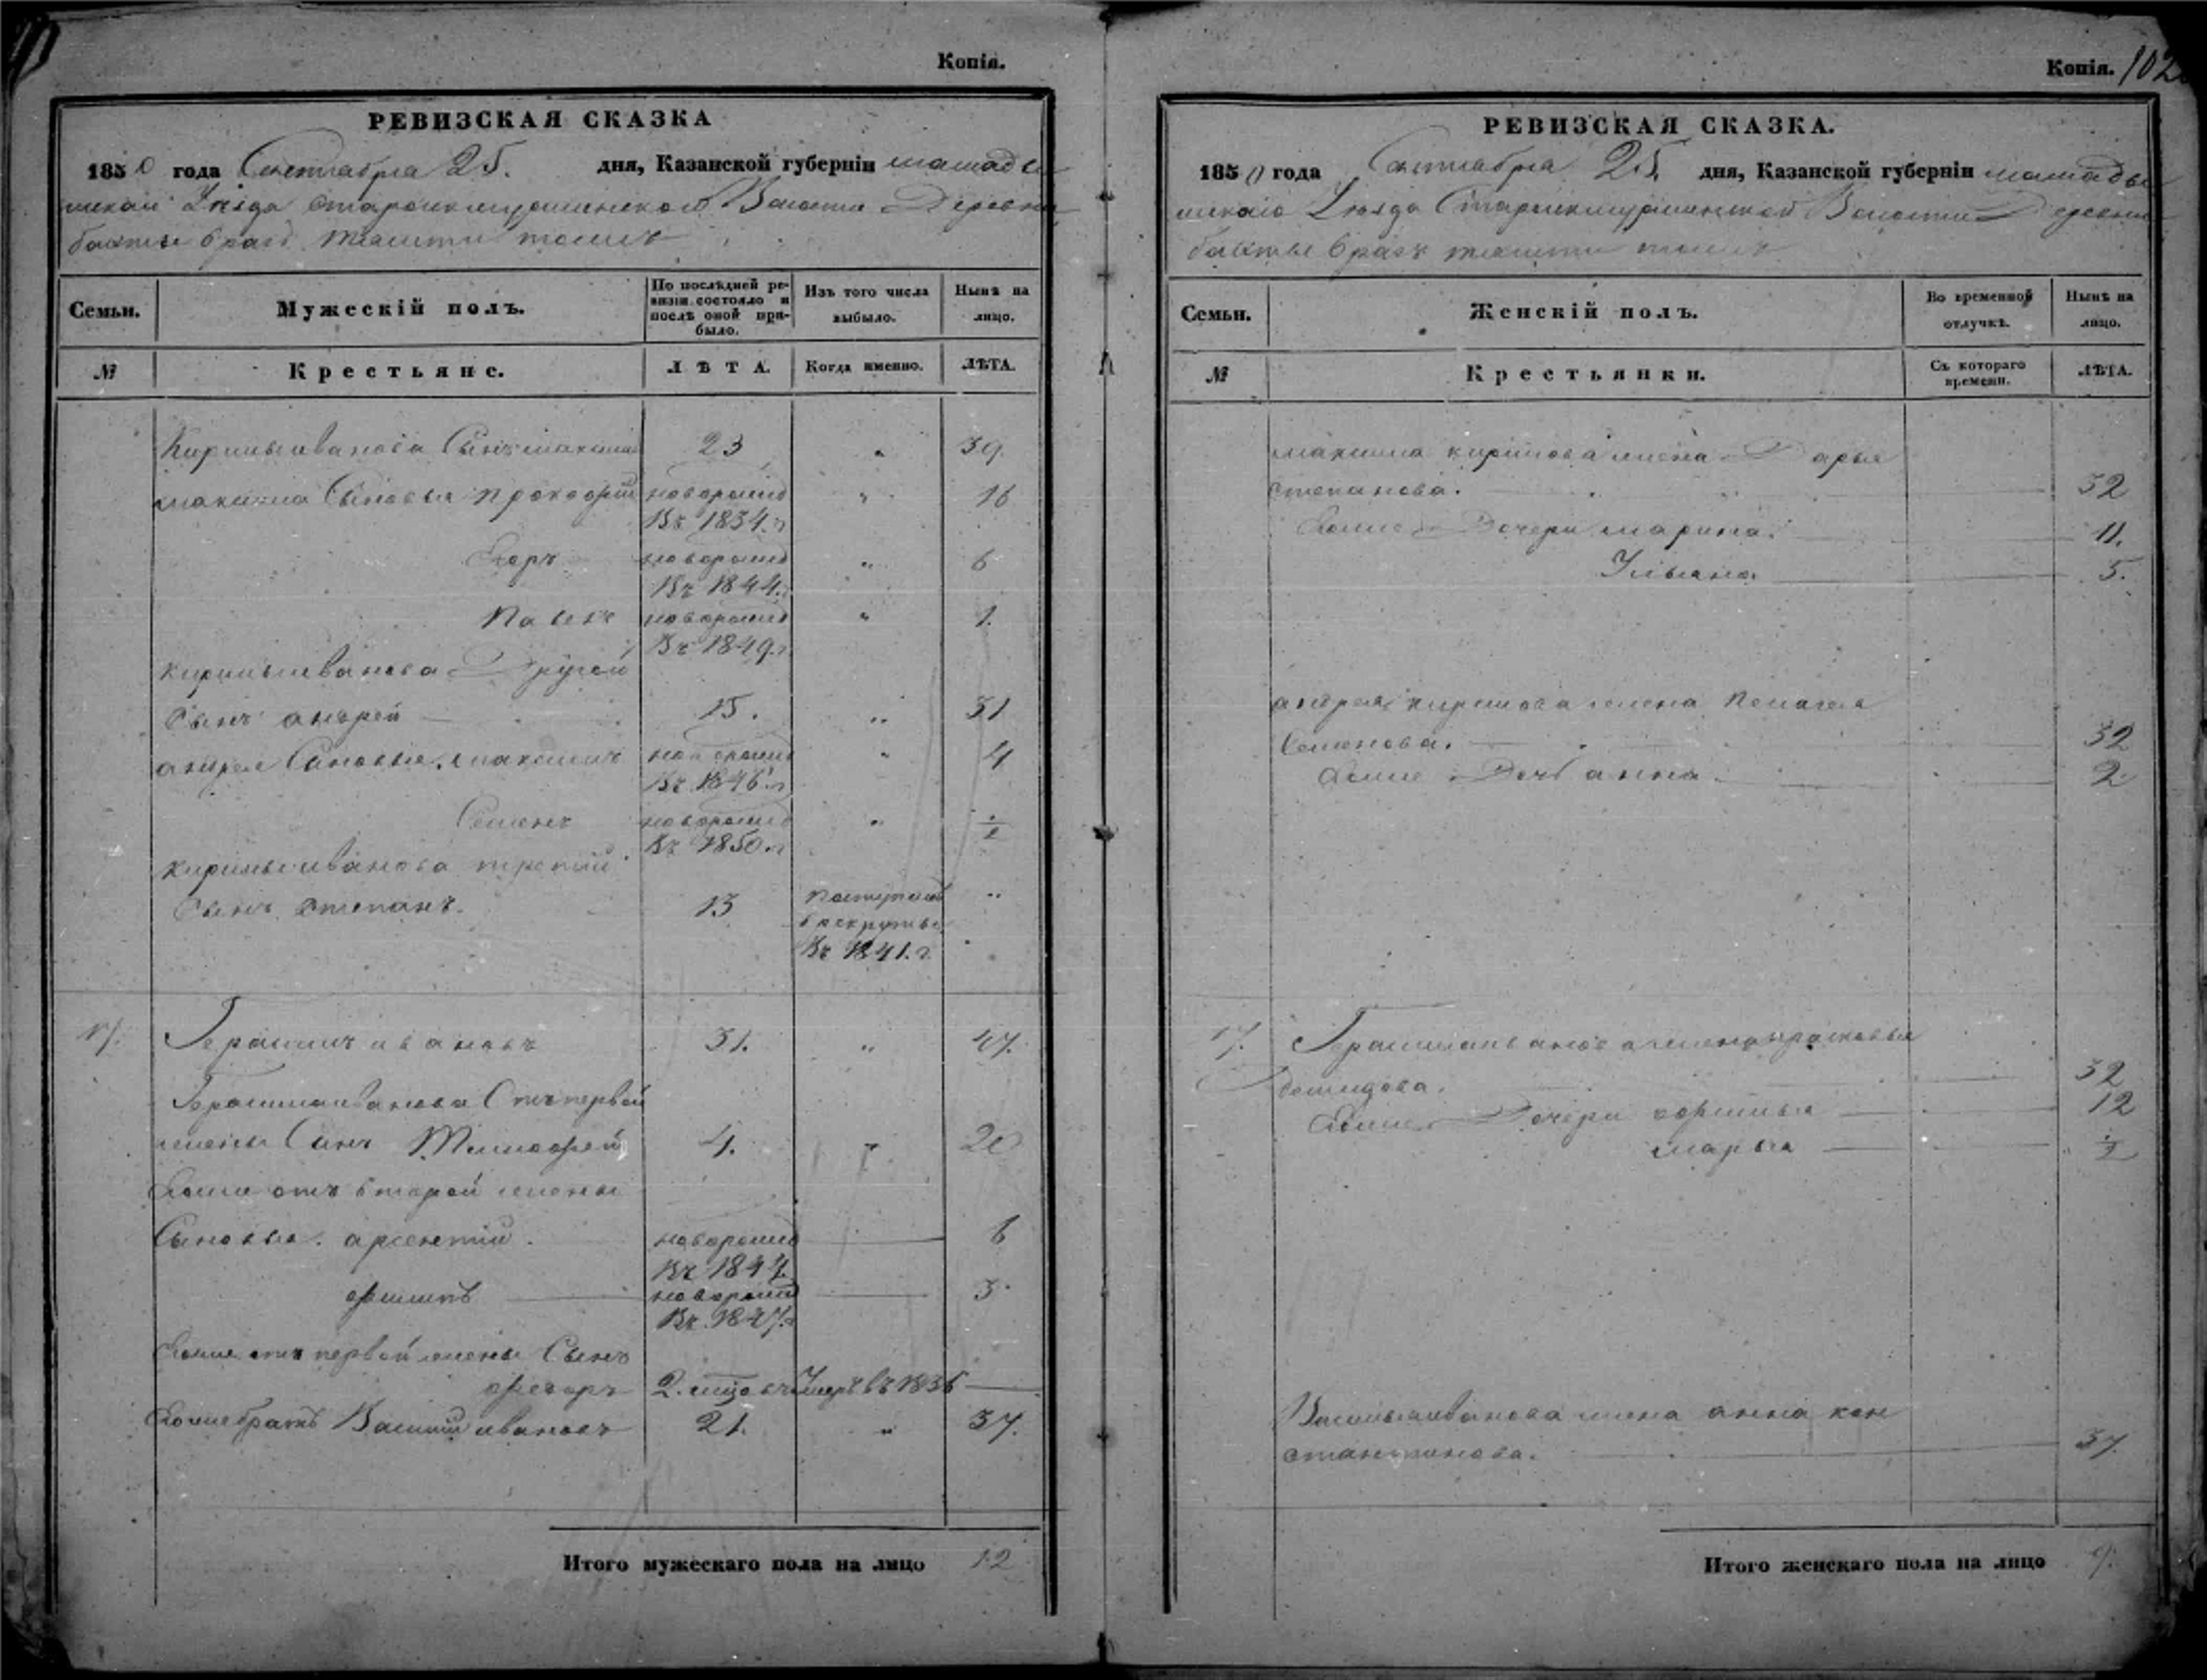 Копія.
РЕВИЗСКАЯ СКАЗКА
1850 года Сентября 25. дня, Казанской губерніи мамады
шскаго Уѣзда Волости Деревни
Семьи.
Мужескій полъ.
По послѣдней ре-
визіи состояло и
послѣ оной при-
было.
Изъ того числа
выбыло.
Нынѣ на
лицо.
№
Крестьяне.
ЛѢТА.
Когда именно.
ЛѢТА.
Кирилы иванова Сынъ максимъ 23 " 39.
максима Сыновья прокофій новорожд " 16
Въ 1834. г
Егоръ новорожд " 6
Въ 1844. г
Павелъ новорожд " 1.
Въ 1849. г.
кирилы иванова Другой
Сынъ андрей 15. " 31
андрея Сыновья максимъ новорожд " 4
Въ 1846. г
Семенъ новорожд "
Въ 1850. г
кирилы иванова третий
Сынъ степанъ. 13 поступилъ "
в рекруты
Въ 1841. г.
17. Герасимъ ивановъ 31. " 47.
Герасима иванова Отъ первой
жены Сынъ Тимофей 4. " 20
Ево же отъ второй жены
Сыновья. арсентий. новорожд 6
Въ 1844.
филипъ новорожд 3
Въ 1847. г
Ево же отъ первой жены Сынъ
федоръ 2. Умеръ въ 1836
Ево же братъ Василий ивановъ 21. " 37.
Итого мужескаго пола на лицо 12
Копія. 102
РЕВИЗСКАЯ СКАЗКА.
1850 года Сентября 25. дня, Казанской губерніи мамады
шскаго Уѣзда Волости Деревни
Семьи.
Женскій полъ.
Во временной
отлучкѣ.
Нынѣ на
лицо.
№
Крестьянки.
Съ котораго
времени.
ЛѢТА.
максима кирилова жена Дарья
степанова. 32
Ево же Дочери марина. 11.
Ульяна. 5.
андрея кирилова жена пелагея
Семенова. 32
Ево же Дочь анна 2
17. Герасима иванова жена прасковья
демидова. 32
Ево же Дочери 12
марья
Василья иванова жена анна кон
стантинова. 37
Итого женскаго пола на лицо 9.